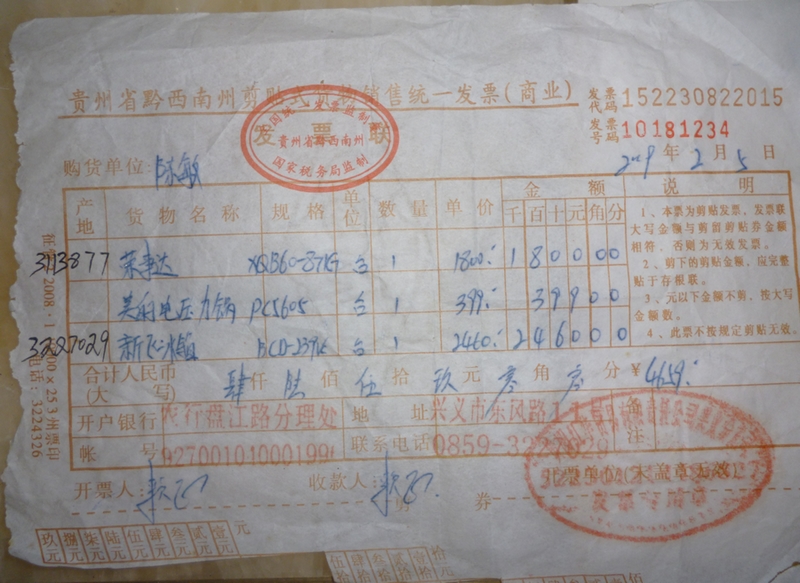 贵州省黔西南州剪贴式货物销售统一发票(商业)
发票代码 152230822015
发票号码 10181234
发票联
全国统一发票监制章
贵州省黔西南州
国家税务局监制
购货单位: 陈敏
2009年2月5日
产地 货物名称 规格 单位 数量 单价 金额 说明
千百十元角分
3113877 荣事达 台 1 1800 180000
美的电压力锅 PCS605 台 1 399 39900
3227029 新飞冰箱 台 1 2460 246000
1、本票为剪贴发票,发票联
大写金额与剪留剪贴券金额
相符,否则为无效发票。
2、剪下的剪贴金额,应完整
贴于存根联。
3、元以下金额不剪,按大写
金额数。
4、此票不按规定剪贴无效。
合计人民币(大写) 肆仟陆佰伍拾玖元零角零分 ¥4659
开户银行 农行盘江路分理处 地址 兴义市东风路 备注
帐号 92700101000199 联系电话 0859-3227029
开票单位(未盖章无效)
发票专用章
开票人: 收款人:
剪 券
电话:3224326
玖元 捌元 柒元 陆元 伍元 肆元 叁元 贰元 壹元 元
伍拾 肆拾 叁拾 贰拾 壹拾 拾元